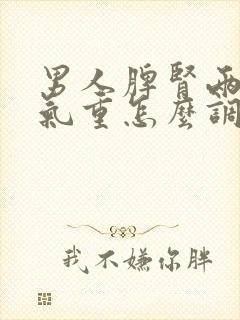 男人脾腎兩
氣重怎麼調
我不嫌你胖